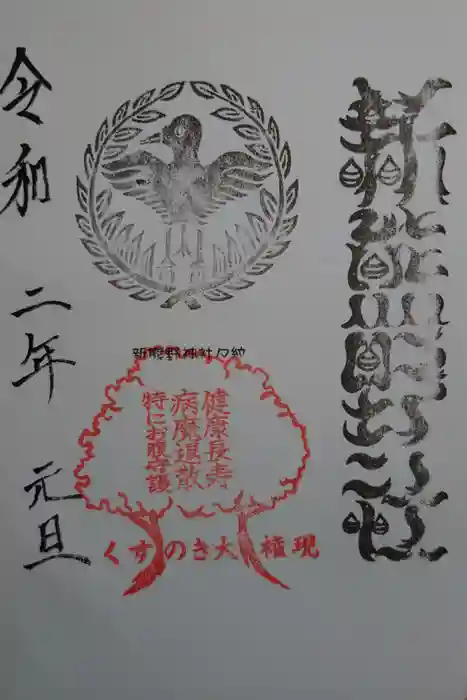 新熊野神社
新熊野神社乃紋
健康長寿
病魔退散
特にお腹守護
くすのき大権現
令和二年元旦